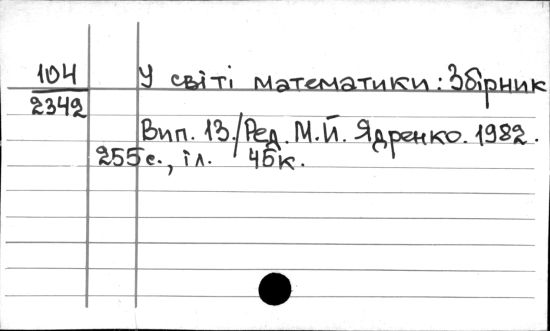 104
2342
У світі математики: Збірник
Вип. 13./Ред. М.Й. Ядренко. 1982.
255с., іл. 45к.